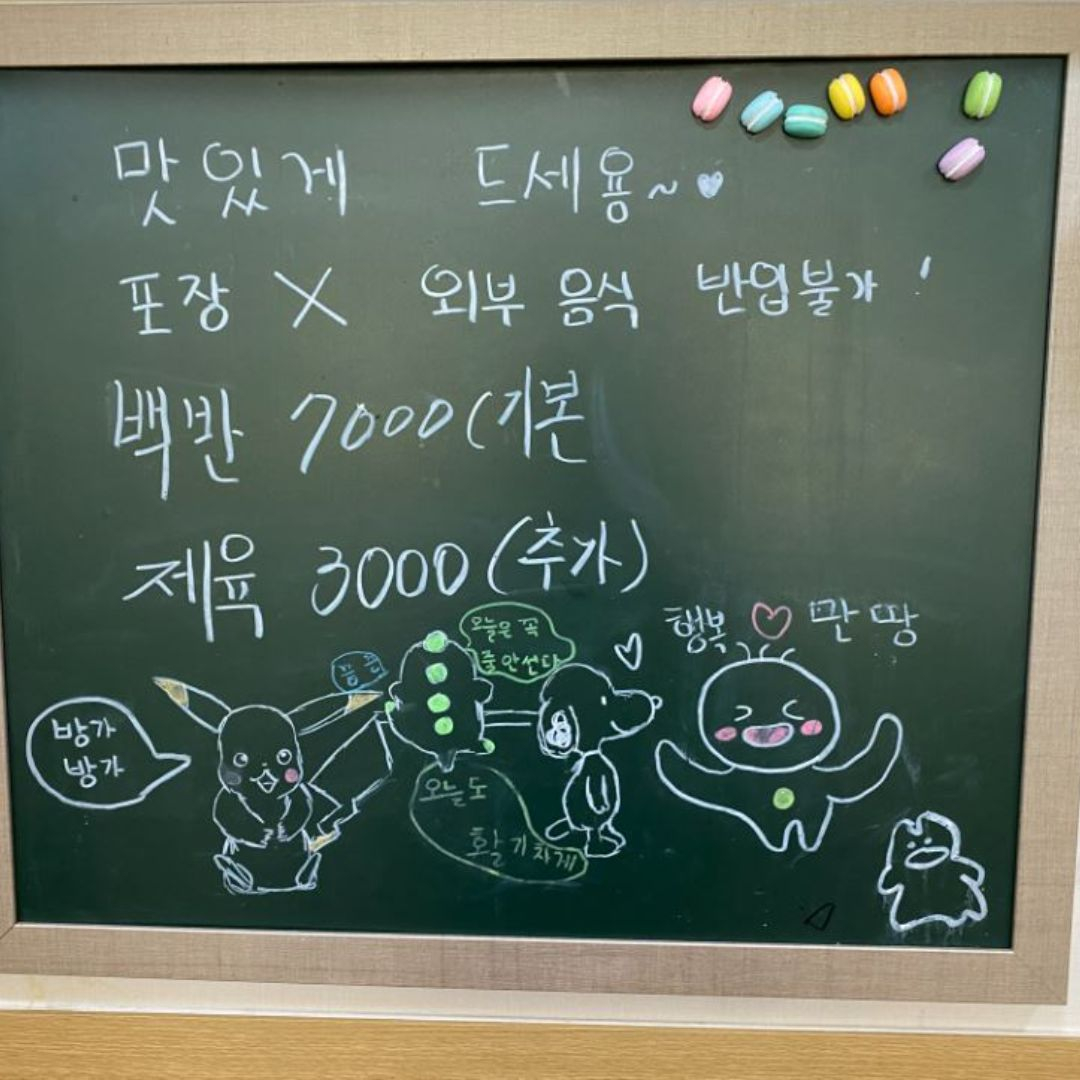 맛있게 드세용~♥
포장 X 외부 음식 반입불가!
백반 7000(기본
제육 3000(추가)
행복 ♡ 만땅
오늘은 꼭
줄안선다
방가
방가
오늘도
활기차게